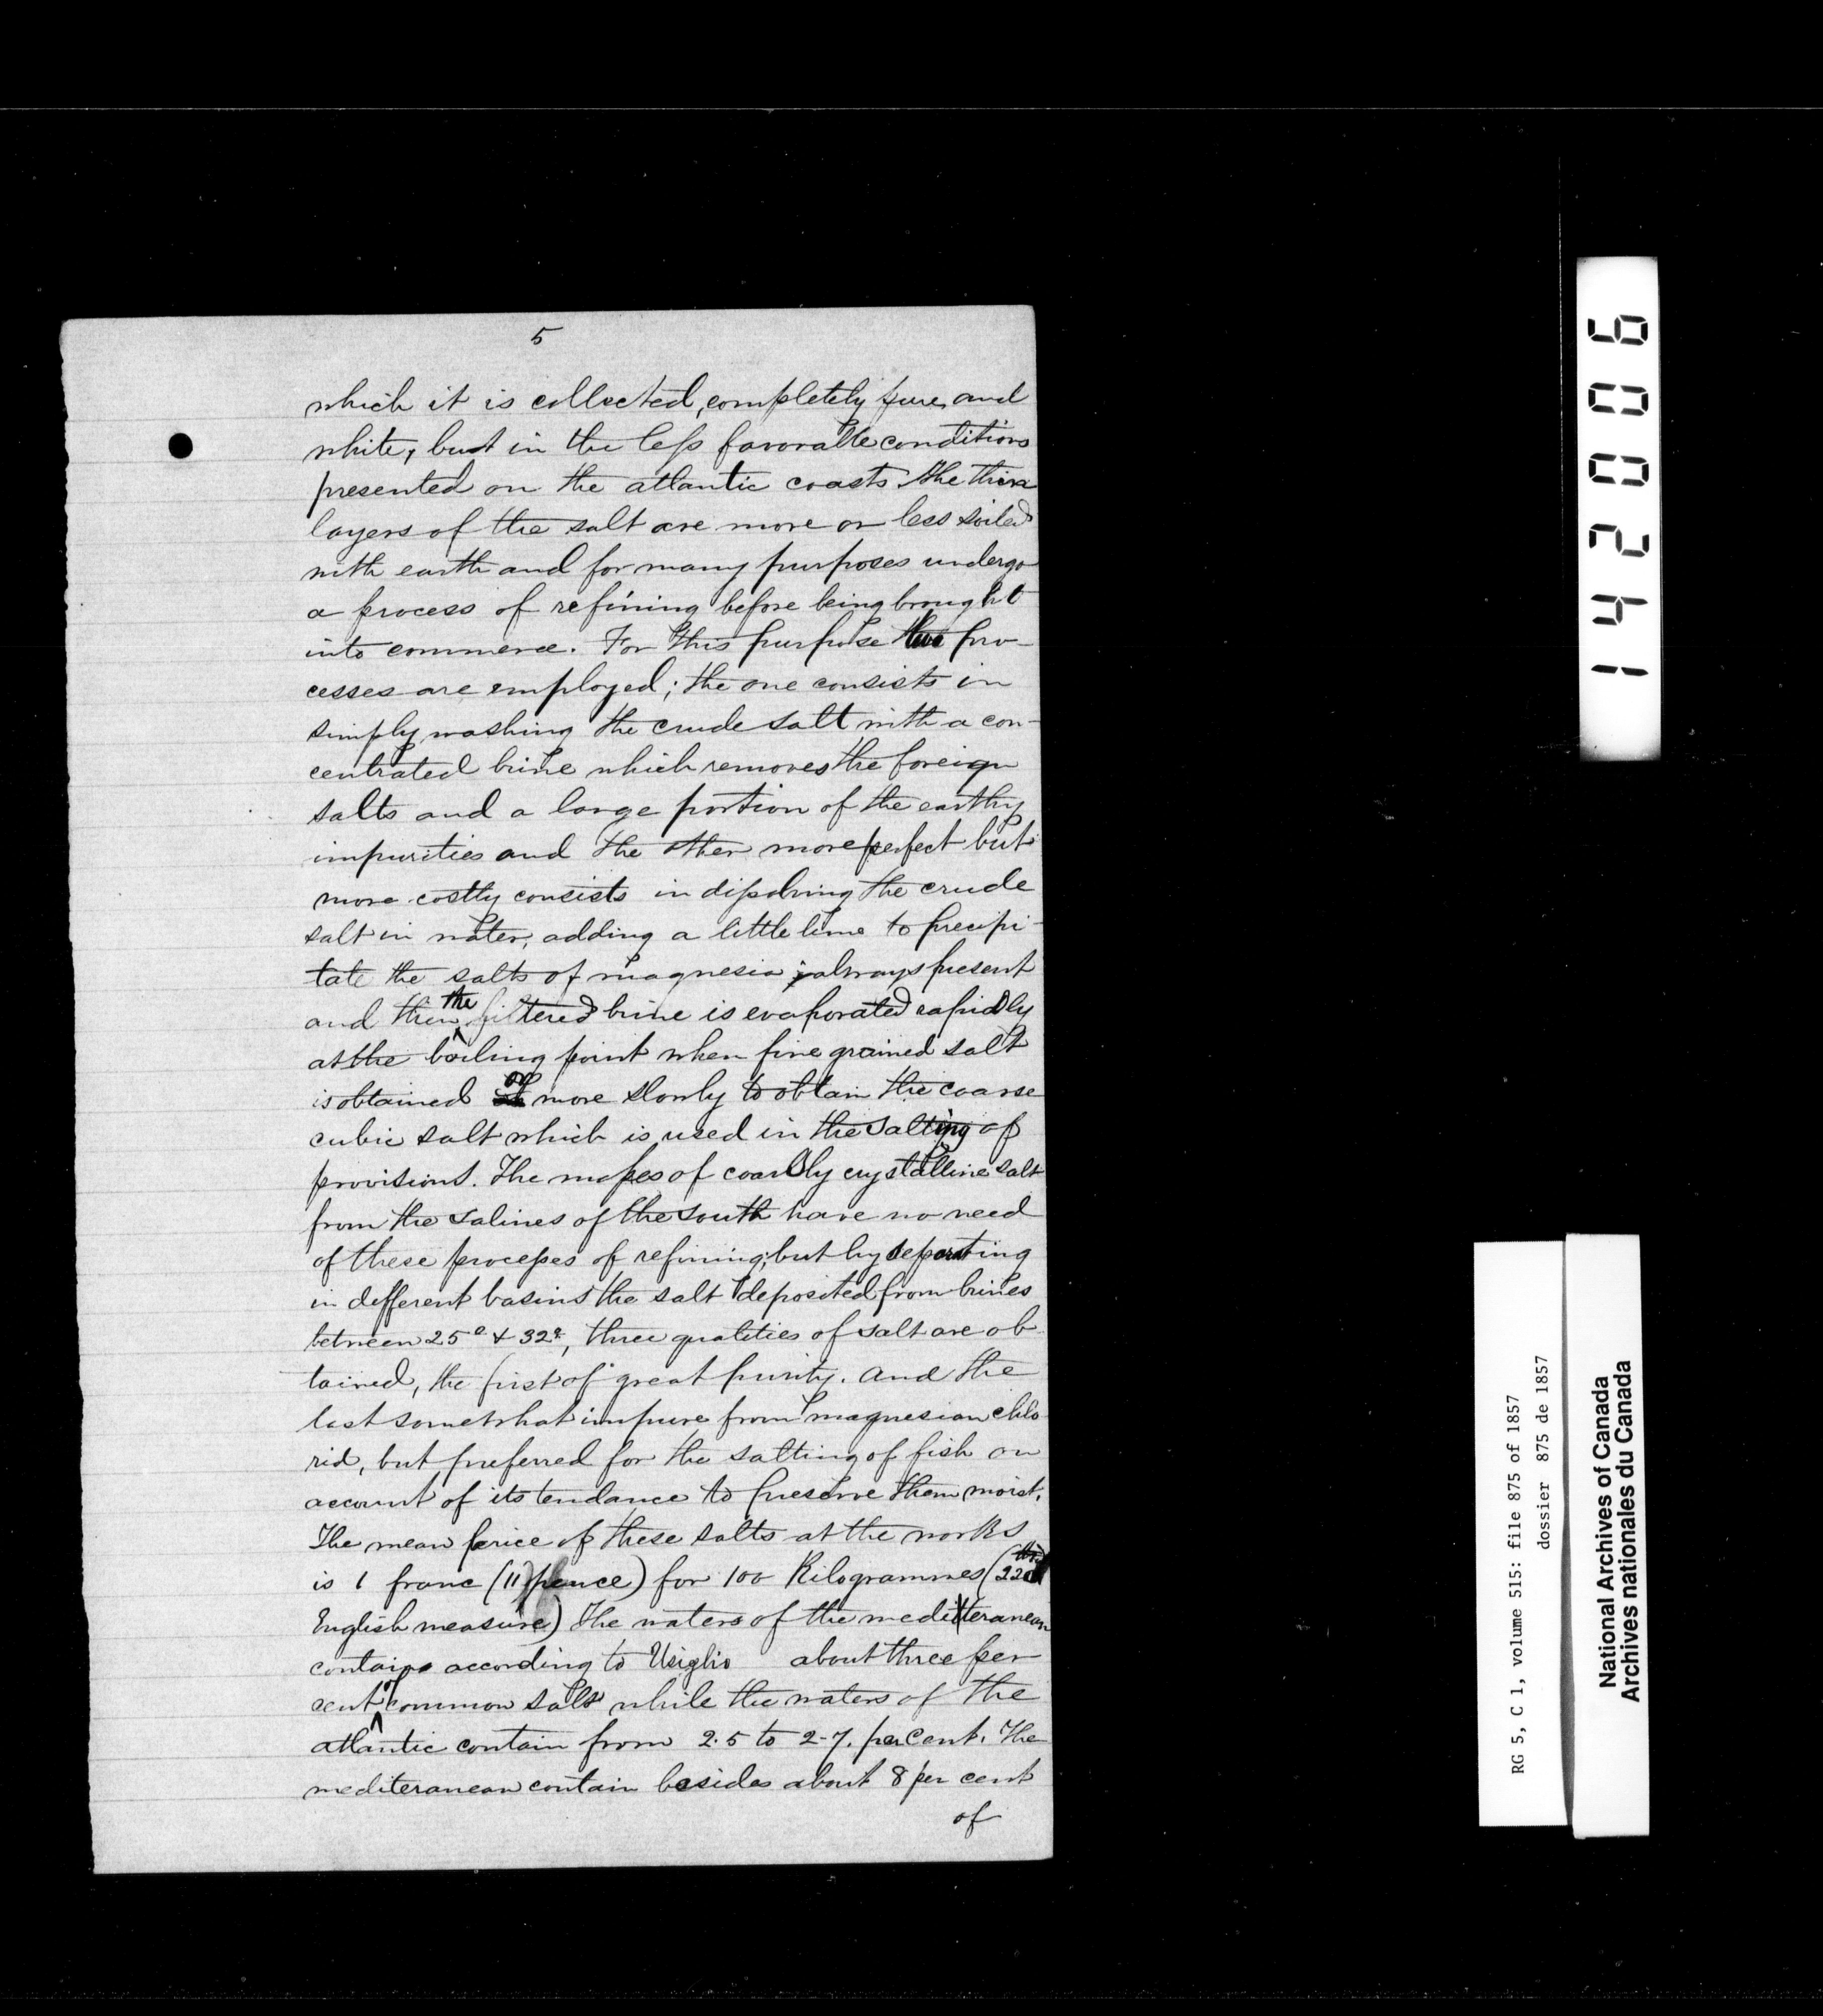 5
which it is collected, completely pure, and
white, but in the less favorable conditions
presented on the atlantic coasts the thin
layers of the salt are more or less soiled
with earth and for many purposes undergo
a process of refining before being brought
into commerce. For this purpose two pro-
cesses are employed; the one consists in
simply washing the crude salt with a con-
centrated brine which removes the foreign
salts and a large portion of the earthy
impurities and the other more perfect but
more costly consists in dissolving the crude
salt in water, adding a little lime to precipi-
tate the salts of magnesia, always present
and then the filtered brine is evaporated rapidly
at the boiling point when fine grained salt
is obtained or more slowly to obtain the coarse
cubic salt which is used in the salting of
provisions. The masses of coarsly crystalline salt
from the salines of the south have no need
of these processes of refining; but by separating
in different basins the salt deposited from brines
between 25° & 32°, three qualities of salt are ob
tained, the first of great purity. and the
last somewhat impure from magnesian chlo
rid, but preferred for the salting of fish on
account of its tendance to preserve them moist.
The mean price of these salts at the works
is 1 franc (11 pence) for 100 Kilogrammes (220 lbs
English measure) The waters of the mediterranean
contains according to Usiglio about three per
cent of common salt while the waters of the
atlantic contain from 2.5 to 2-7. per cent. The
mediteranean contain besides about 8 per cent
of
142006
RG 5, C 1, volume 515: file 875 of 1857
dossier 875 de 1857
National Archives of Canada
Archives nationales du Canada